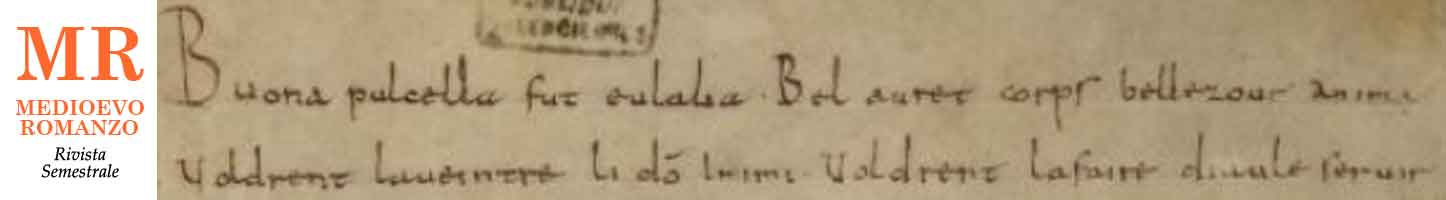 MR
MEDIOEVO
ROMANZO
Rivista
Semestrale
Buona pulcella fut eulalia. Bel auret corps bellezour anima
Voldrent laueintre li dō Inimi. Voldrent lafaire diaule seruir